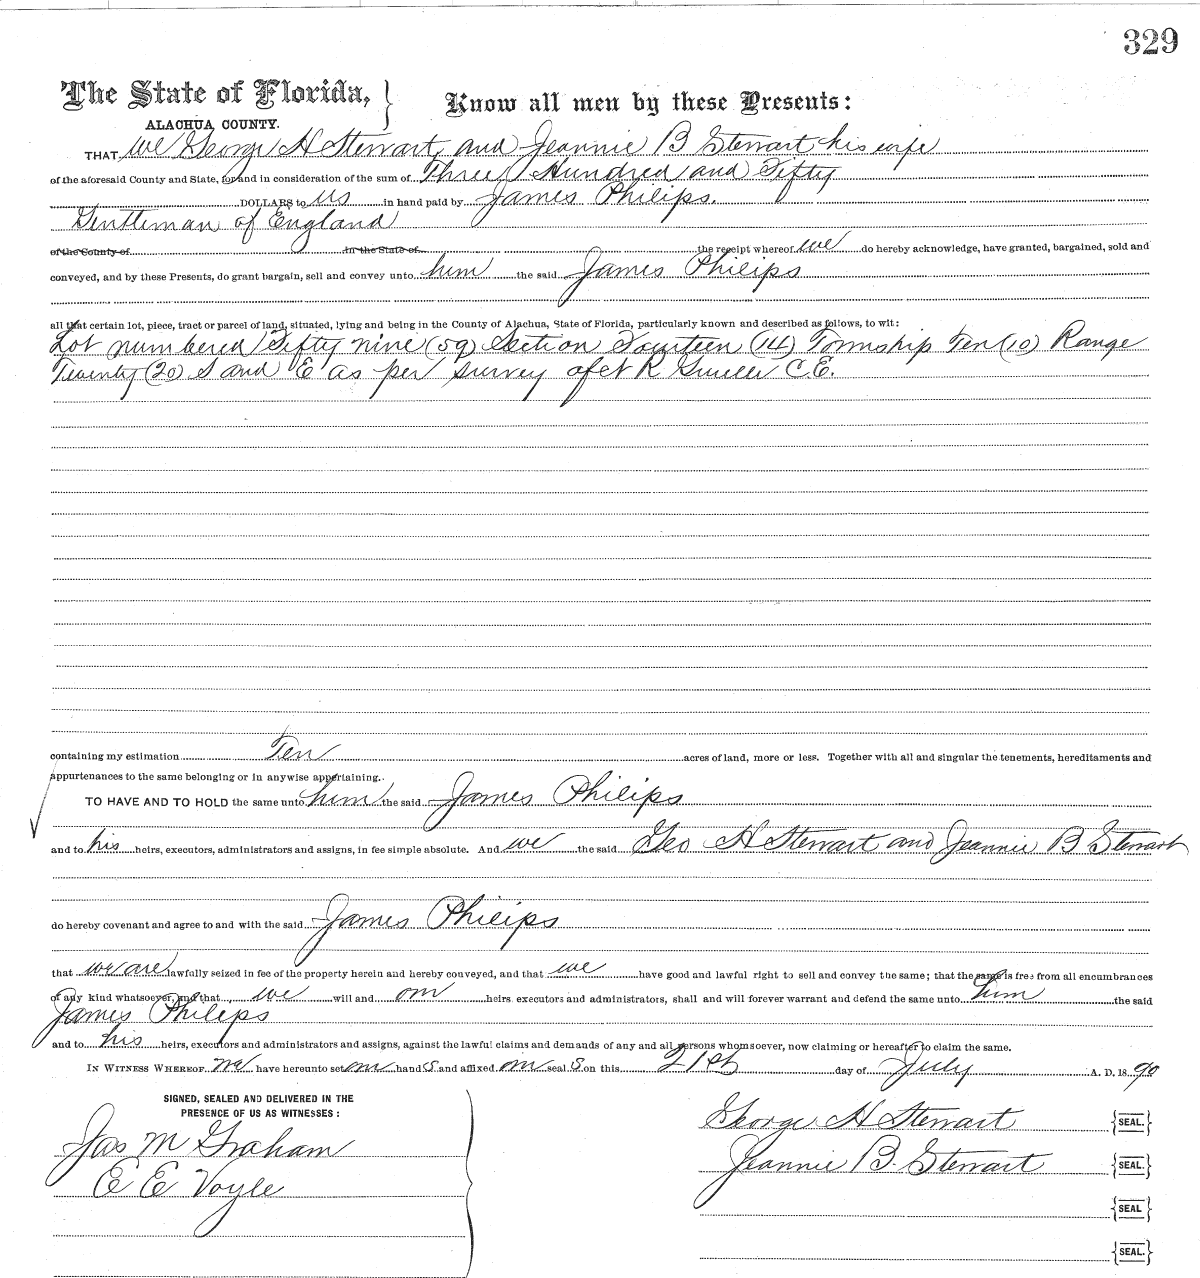 329
The State of Florida, } Know all men by these Presents:
ALACHUA COUNTY.
THAT We George H Stewart and Jeannie B Stewart his wife
of the aforesaid County and State, for and in consideration of the sum of Three Hundred and Fifty
DOLLARS to us in hand paid by James Philips.
Gentleman of England
of the County of in the State of the receipt whereof we do hereby acknowledge, have granted, bargained, sold and
conveyed, and by these Presents, do grant bargain, sell and convey unto him the said James Philips
all that certain lot, piece, tract or parcel of land, situated, lying and being in the County of Alachua, State of Florida, particularly known and described as follows, to wit:
Lot numbered Fifty nine (59) Section Fourteen (14) Township Ten (10) Range
Twenty (20) S and E as per survey of R C.E.
containing my estimation Ten acres of land, more or less. Together with all and singular the tenements, hereditaments and
appurtenances to the same belonging or in anywise appertaining.
TO HAVE AND TO HOLD the same unto him the said James Philips
and to his heirs, executors, administrators and assigns, in fee simple absolute. And we the said Geo H Stewart and Jeannie B Stewart
do hereby covenant and agree to and with the said James Philips
that we are lawfully seized in fee of the property herein and hereby conveyed, and that we have good and lawful right to sell and convey the same; that the same is free from all encumbrances
of any kind whatsoever, and that we will and our heirs executors and administrators, shall and will forever warrant and defend the same unto him the said
James Philips
and to his heirs, executors and administrators and assigns, against the lawful claims and demands of any and all persons whomsoever, now claiming or hereafter to claim the same.
IN WITNESS WHEREOF we have hereunto set our hand s and affixed our seal s on this 21st day of July A. D. 18 90
SIGNED, SEALED AND DELIVERED IN THE
PRESENCE OF US AS WITNESSES:
George H Stewart {SEAL.}
Jas M Graham
Jeannie B. Stewart {SEAL.}
E E Voyle
{SEAL}
{SEAL.}